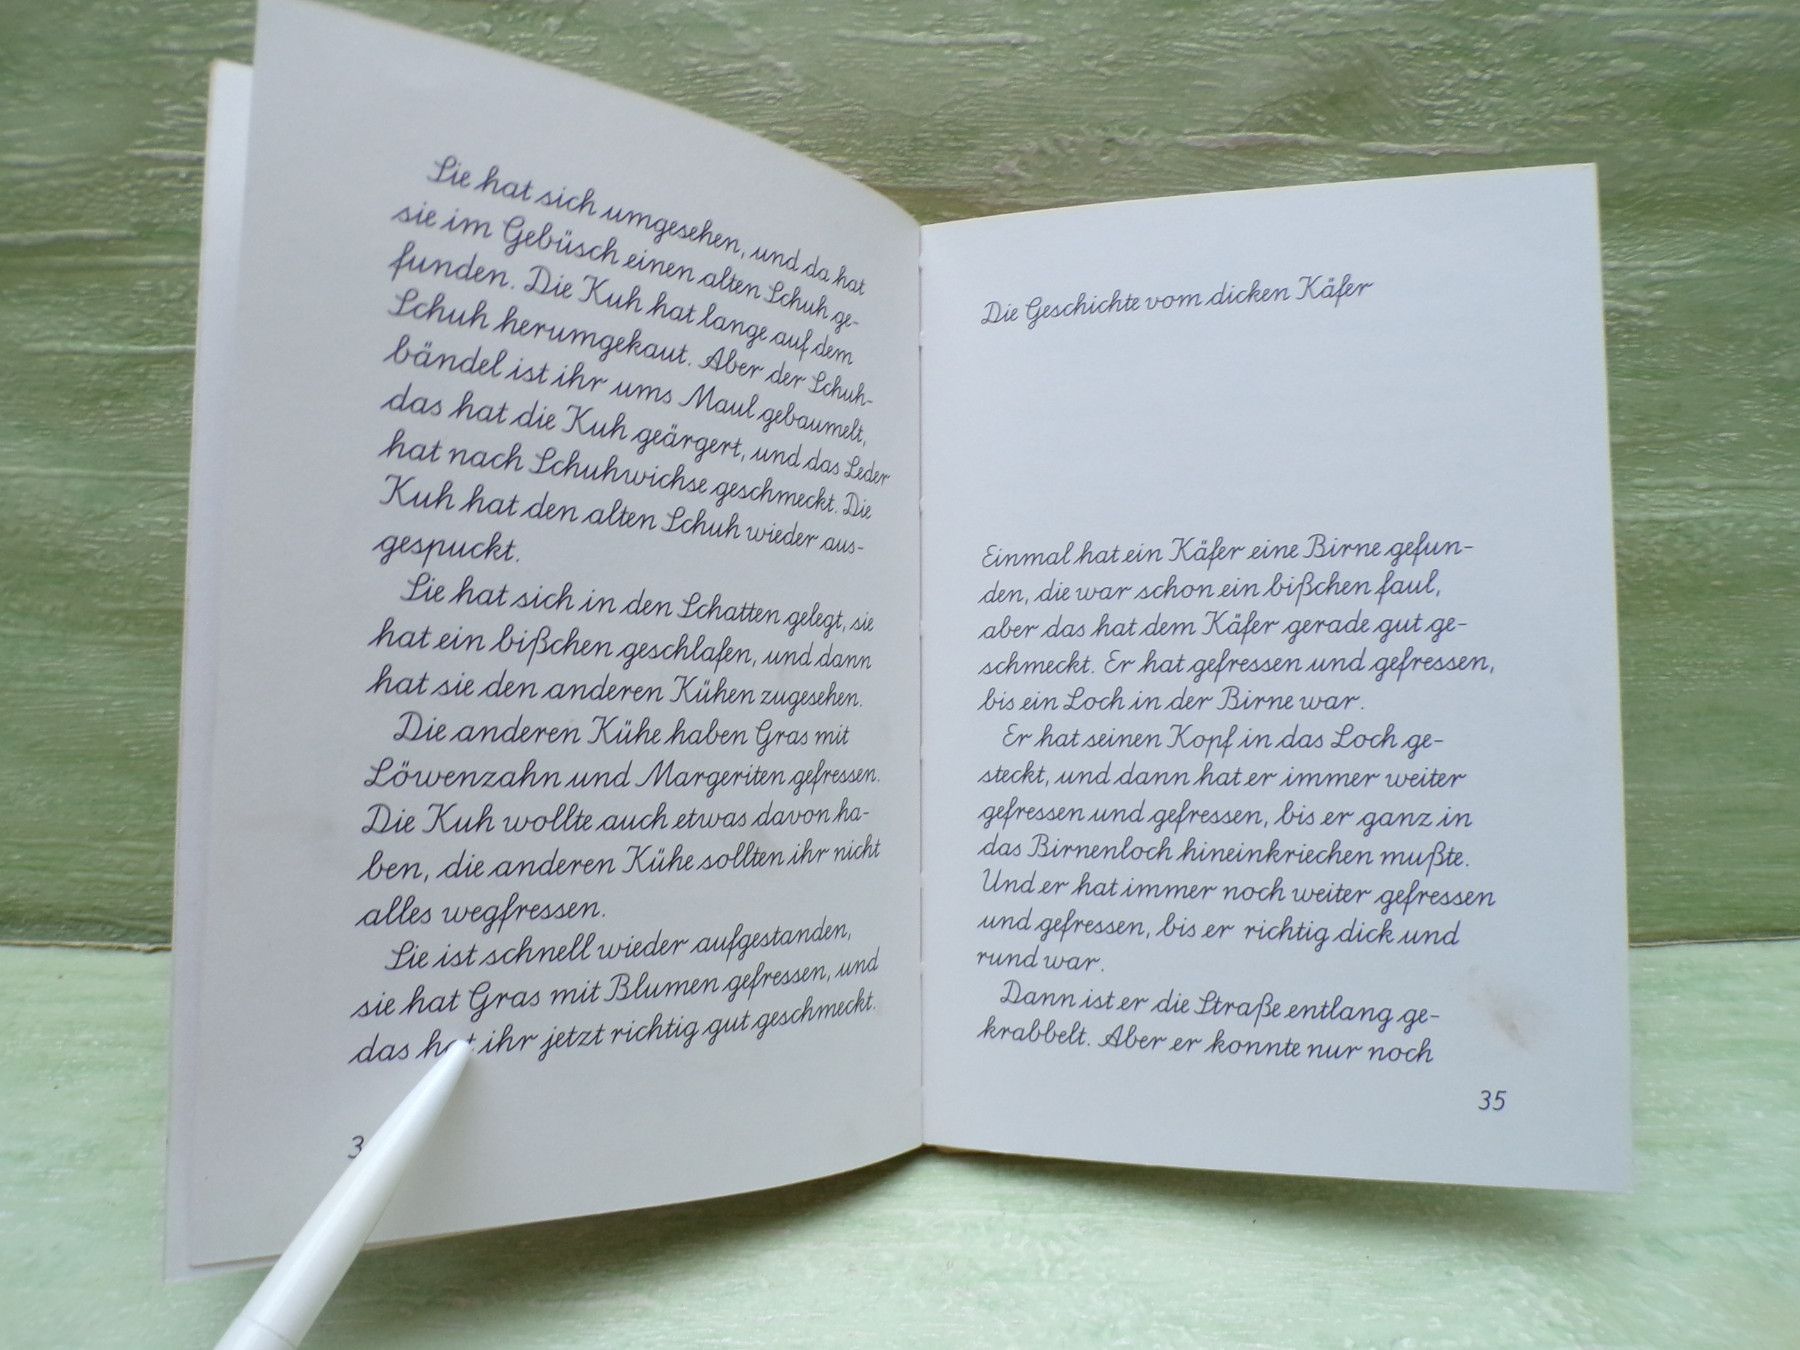 Sie hat sich umgesehen, und da hat
sie im Gebüsch einen alten Schuh ge-
funden. Die Kuh hat lange auf dem
Schuh herumgekaut. Aber der Schuh-
bändel ist ihr ums Maul gebaumelt,
das hat die Kuh geärgert, und das Leder
hat nach Schuhwichse geschmeckt. Die
Kuh hat den alten Schuh wieder aus-
gespuckt.
Sie hat sich in den Schatten gelegt, sie
hat ein bißchen geschlafen, und dann
hat sie den anderen Kühen zugesehen.
Die anderen Kühe haben Gras mit
Löwenzahn und Margeriten gefressen.
Die Kuh wollte auch etwas davon ha-
ben, die anderen Kühe sollten ihr nicht
alles wegfressen.
Sie ist schnell wieder aufgestanden,
sie hat Gras mit Blumen gefressen, und
das hat ihr jetzt richtig gut geschmeckt.
Die Geschichte vom dicken Käfer
Einmal hat ein Käfer eine Birne gefun-
den, die war schon ein bißchen faul,
aber das hat dem Käfer gerade gut ge-
schmeckt. Er hat gefressen und gefressen,
bis ein Loch in der Birne war.
Er hat seinen Kopf in das Loch ge-
steckt, und dann hat er immer weiter
gefressen und gefressen, bis er ganz in
das Birnenloch hineinkriechen mußte.
Und er hat immer noch weiter gefressen
und gefressen, bis er richtig dick und
rund war.
Dann ist er die Straße entlang ge-
krabbelt. Aber er konnte nur noch
35